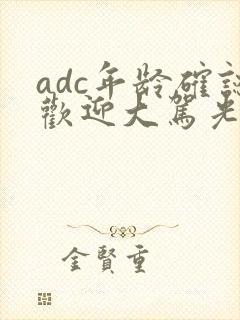 adc年龄確認
歡迎大駕光
金賢重